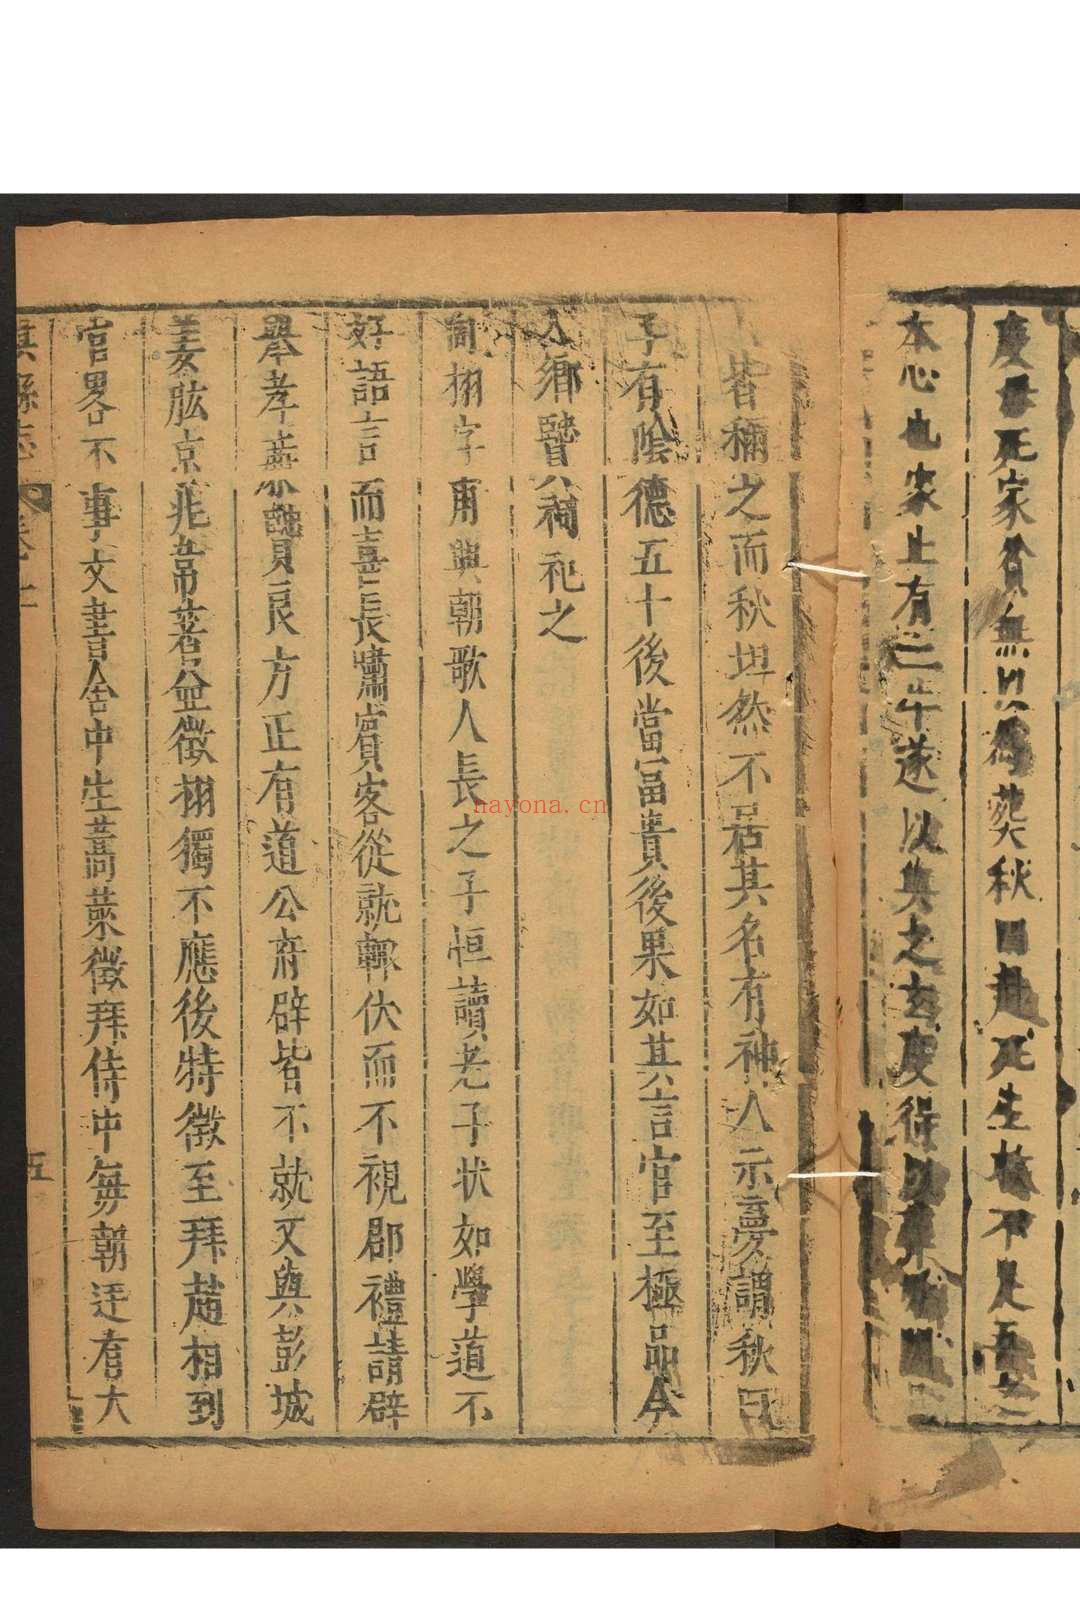 慶母死家貧無以為葬秋曰赴死生救不足吾之
本心也家止有二牛遂以與之玄度得以葬
皆稱之而秋坦然不居其名有神人示夢謂秋曰
子有陰德五十後當富貴後果如其言官至極品今
入鄉賢祠祀之
向栩字甫興朝歌人長之子恒讀老子狀如學道不
好語言而喜長嘯賓客從就輒伏而不視郡禮請辟
舉孝廉賢良方正有道公府辟皆不就又與彭城
姜肱京兆韋著並徵栩獨不應後特徵至拜趙相到
官畧不事文書舍中生蒿萊徵拜侍中每朝廷有大
淇縣志 卷 五
nayona.cn